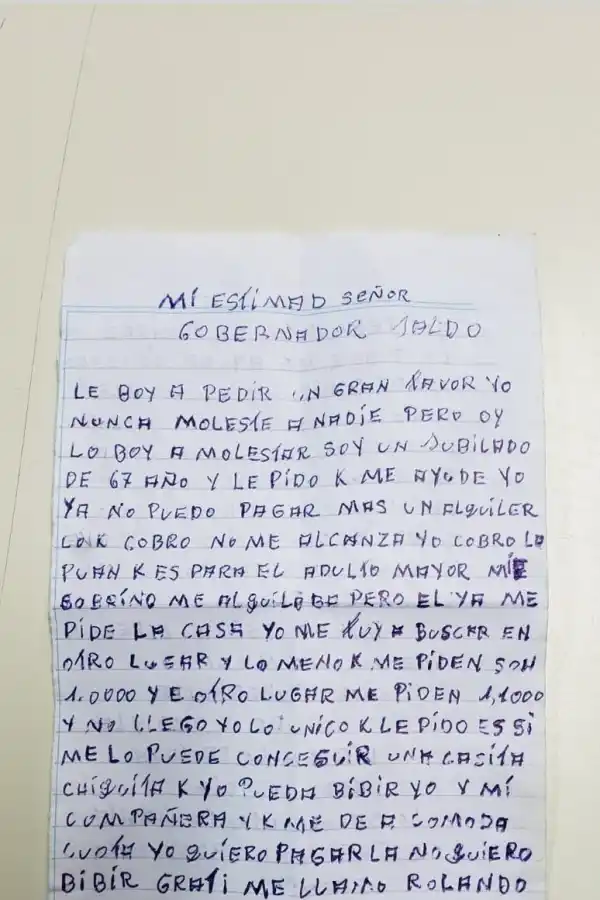 MÍ ESTIMAD SEÑOR
GOBERNADOR JALDO
LE BOY A PEDIR UN GRAN FAVOR YO
NUNCA MOLESTE A NADIE PERO OY
LO BOY A MOLESTAR SOY UN JUBILADO
DE 67 AÑO Y LE PIDO K ME AYUDE YO
YA NO PUEDO PAGAR MAS UN ALQUILER
LO K COBRO NO ME ALCANZA YO COBRO LA
PUAN K ES PARA EL ADULTO MAYOR MI
SOBRINO ME ALQUILABA PERO EL YA ME
PIDE LA CASA YO ME FUY A BUSCAR EN
OTRO LUGAR Y LO MENO K ME PIDEN SON
1.0000 Y E OTRO LUGAR ME PIDEN 1,1000
Y NO LLEGO YO LO UNICO K LE PIDO ES SI
ME LO PUEDE CONCEGUIR UNA CASITA
CHIQUITA K YO PUEDA BIBIR YO Y MÍ
COMPAÑERA Y K ME DE A COMODA
CUOTA YO QUIERO PAGARLA NO QUIERO
BIBIR GRATI ME LLAMO ROLANDO